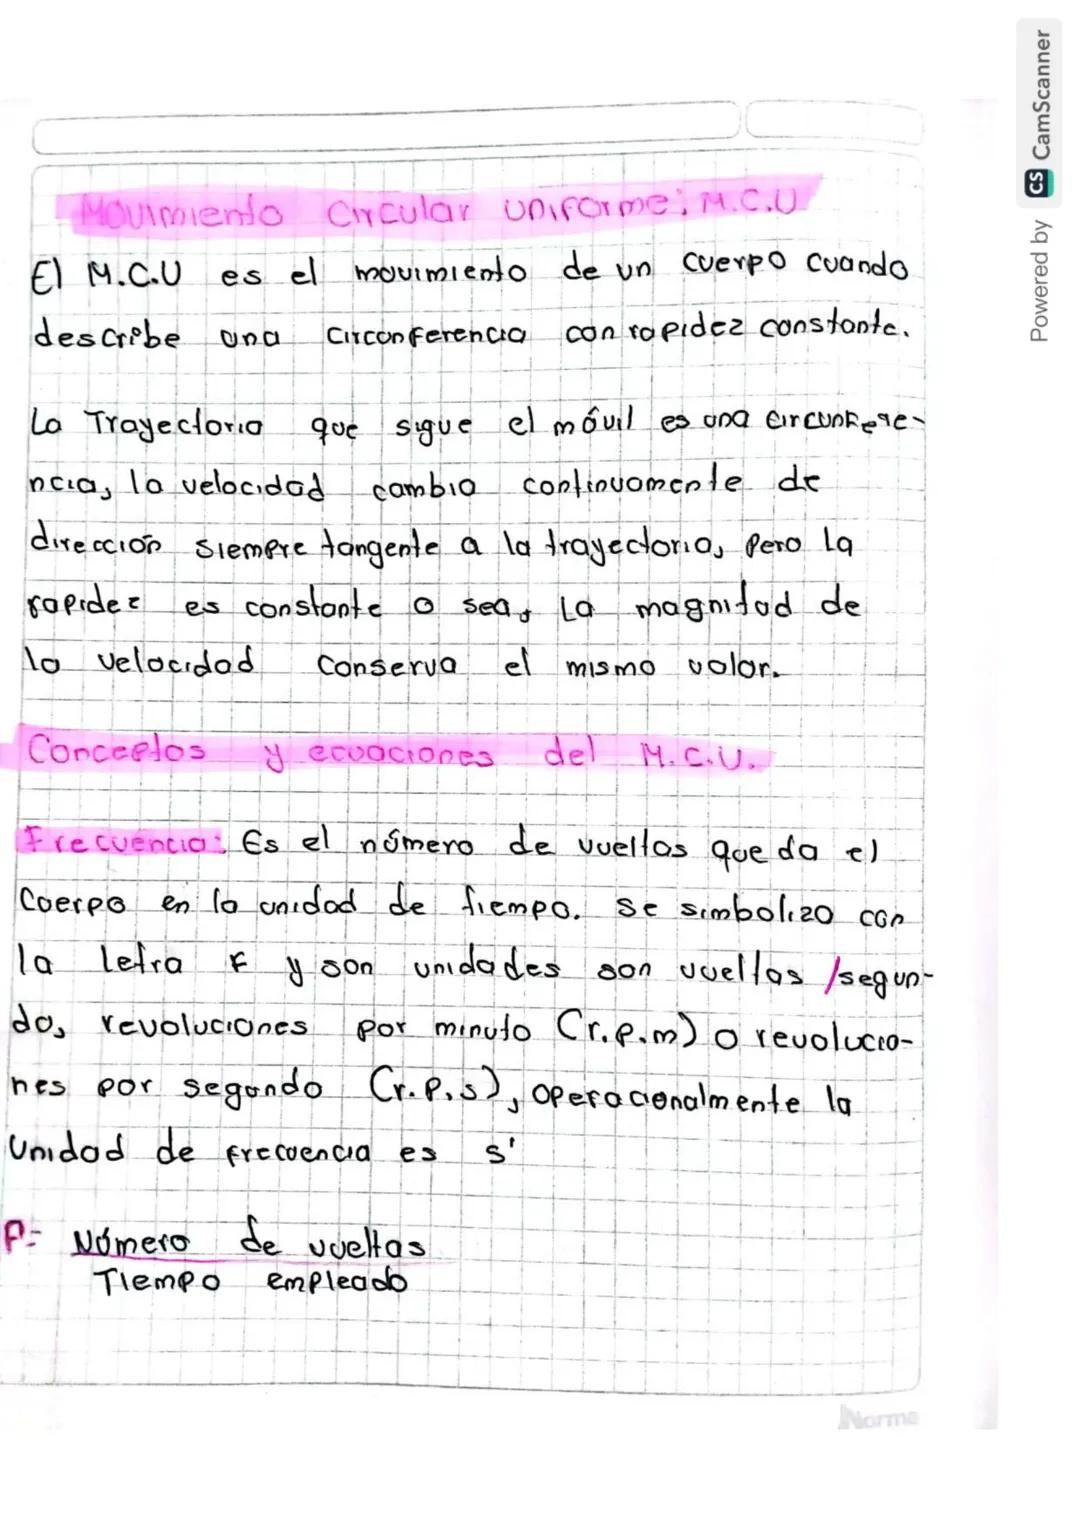 Movimiento Circular uniforme: M.C.U
El M.C.U es el movimiento de un cuerpo cuando
describe una circonferencia con rapidez constante.
La Trayectoria que sigue el móvil es una circunfere-
ncia, la velocidad cambia continuamente de
dirección siempre tangente a la trayectoria, pero la
rapidez es constante o sea, la magnitud de
la velocidad conserva el mismo valor.
Conceptos y ecuaciones del M.C.U.
Frecuencia: Es el número de vueltas que da el
Cuerpo en la unidad de tiempo. se simboliza con
la letra F y son unidades son vueltas /segun-
do, revoluciones por minuto (r.p.m) o revolucio-
nes por segundo (r.p.s), operacionalmente la
Unidad de frecuencia es s'
F= Número de vueltas
Tiempo empleado
Norma
Powered by CS CamScanner